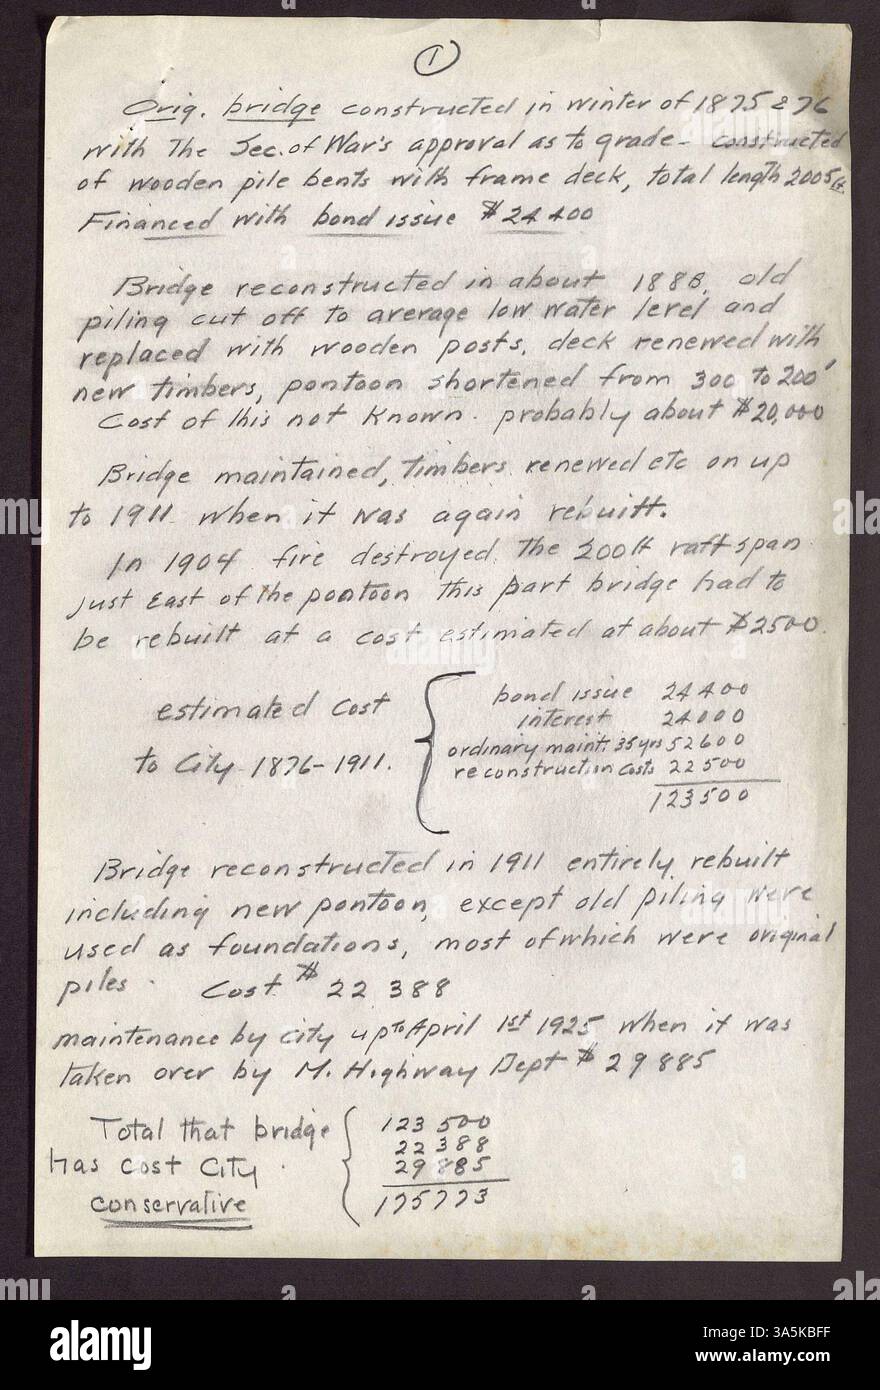 1
Orig. bridge constructed in winter of 1875 & 76
with The Sec. of War's approval as to grade - constructed
of wooden pile bents with frame deck, total length 2005 ft.
Financed with bond issue $24400
Bridge reconstructed in about 1888, old
piling cut off to average low water level and
replaced with wooden posts, deck renewed with
new timbers, pontoon shortened from 300 to 200'
Cost of this not known. probably about $20,000
Bridge maintained, timbers renewed etc on up
to 1911 when it was again rebuilt.
In 1904 fire destroyed the 200 ft raft span
just East of the pontoon this part bridge had to
be rebuilt at a cost estimated at about $2500.
estimated cost
to City 1876-1911.
bond issue 24400
interest 24000
ordinary maint. 35 yrs 52600
reconstruction costs 22500
123500
Bridge reconstructed in 1911 entirely rebuilt
including new pontoon, except old piling were
used as foundations, most of which were original
piles. Cost $22 388
maintenance by city up to April 1st 1925 when it was
taken over by M. Highway Dept $29885
Total that bridge
has cost City.
conservative
123 500
22 388
29 885
175773
alamy
Image ID: 3A5KBFF
www.alamy.com